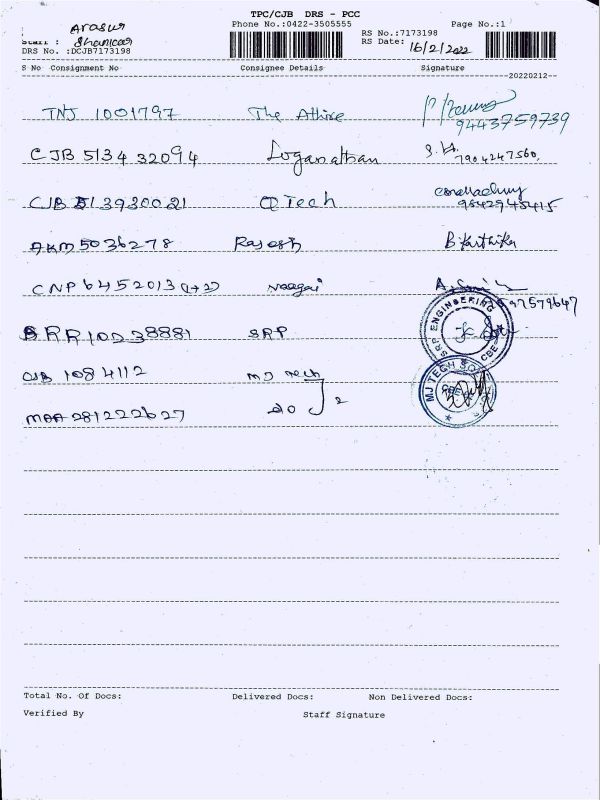 TPC/CJB DRS - PCC
Arasur
Phone No.:0422-3505555
Page No.:1
RS No.:7173198
Staff : Shankar
RS Date: 16/2/2022
DRS No. :DCJB7173198
S No Consignment No Consignee Details Signature
--20220212--
TNJ 1001797 The Athire
9443759739
CJB 513432094 Loganathan
7904247560
CJB 513930021 Q Tech
9842943415
AKM 5036278 Rajesh B. Karthika
CNP 6452013 (1+2) Naagai
97579647
SRP ENGINEERING CBE
BRR10038881 SRP
CJB 1084112 MJ Tech
MJ TECH
MAA 281222627 do 2
Total No. Of Docs: Delivered Docs: Non Delivered Docs:
Verified By Staff Signature